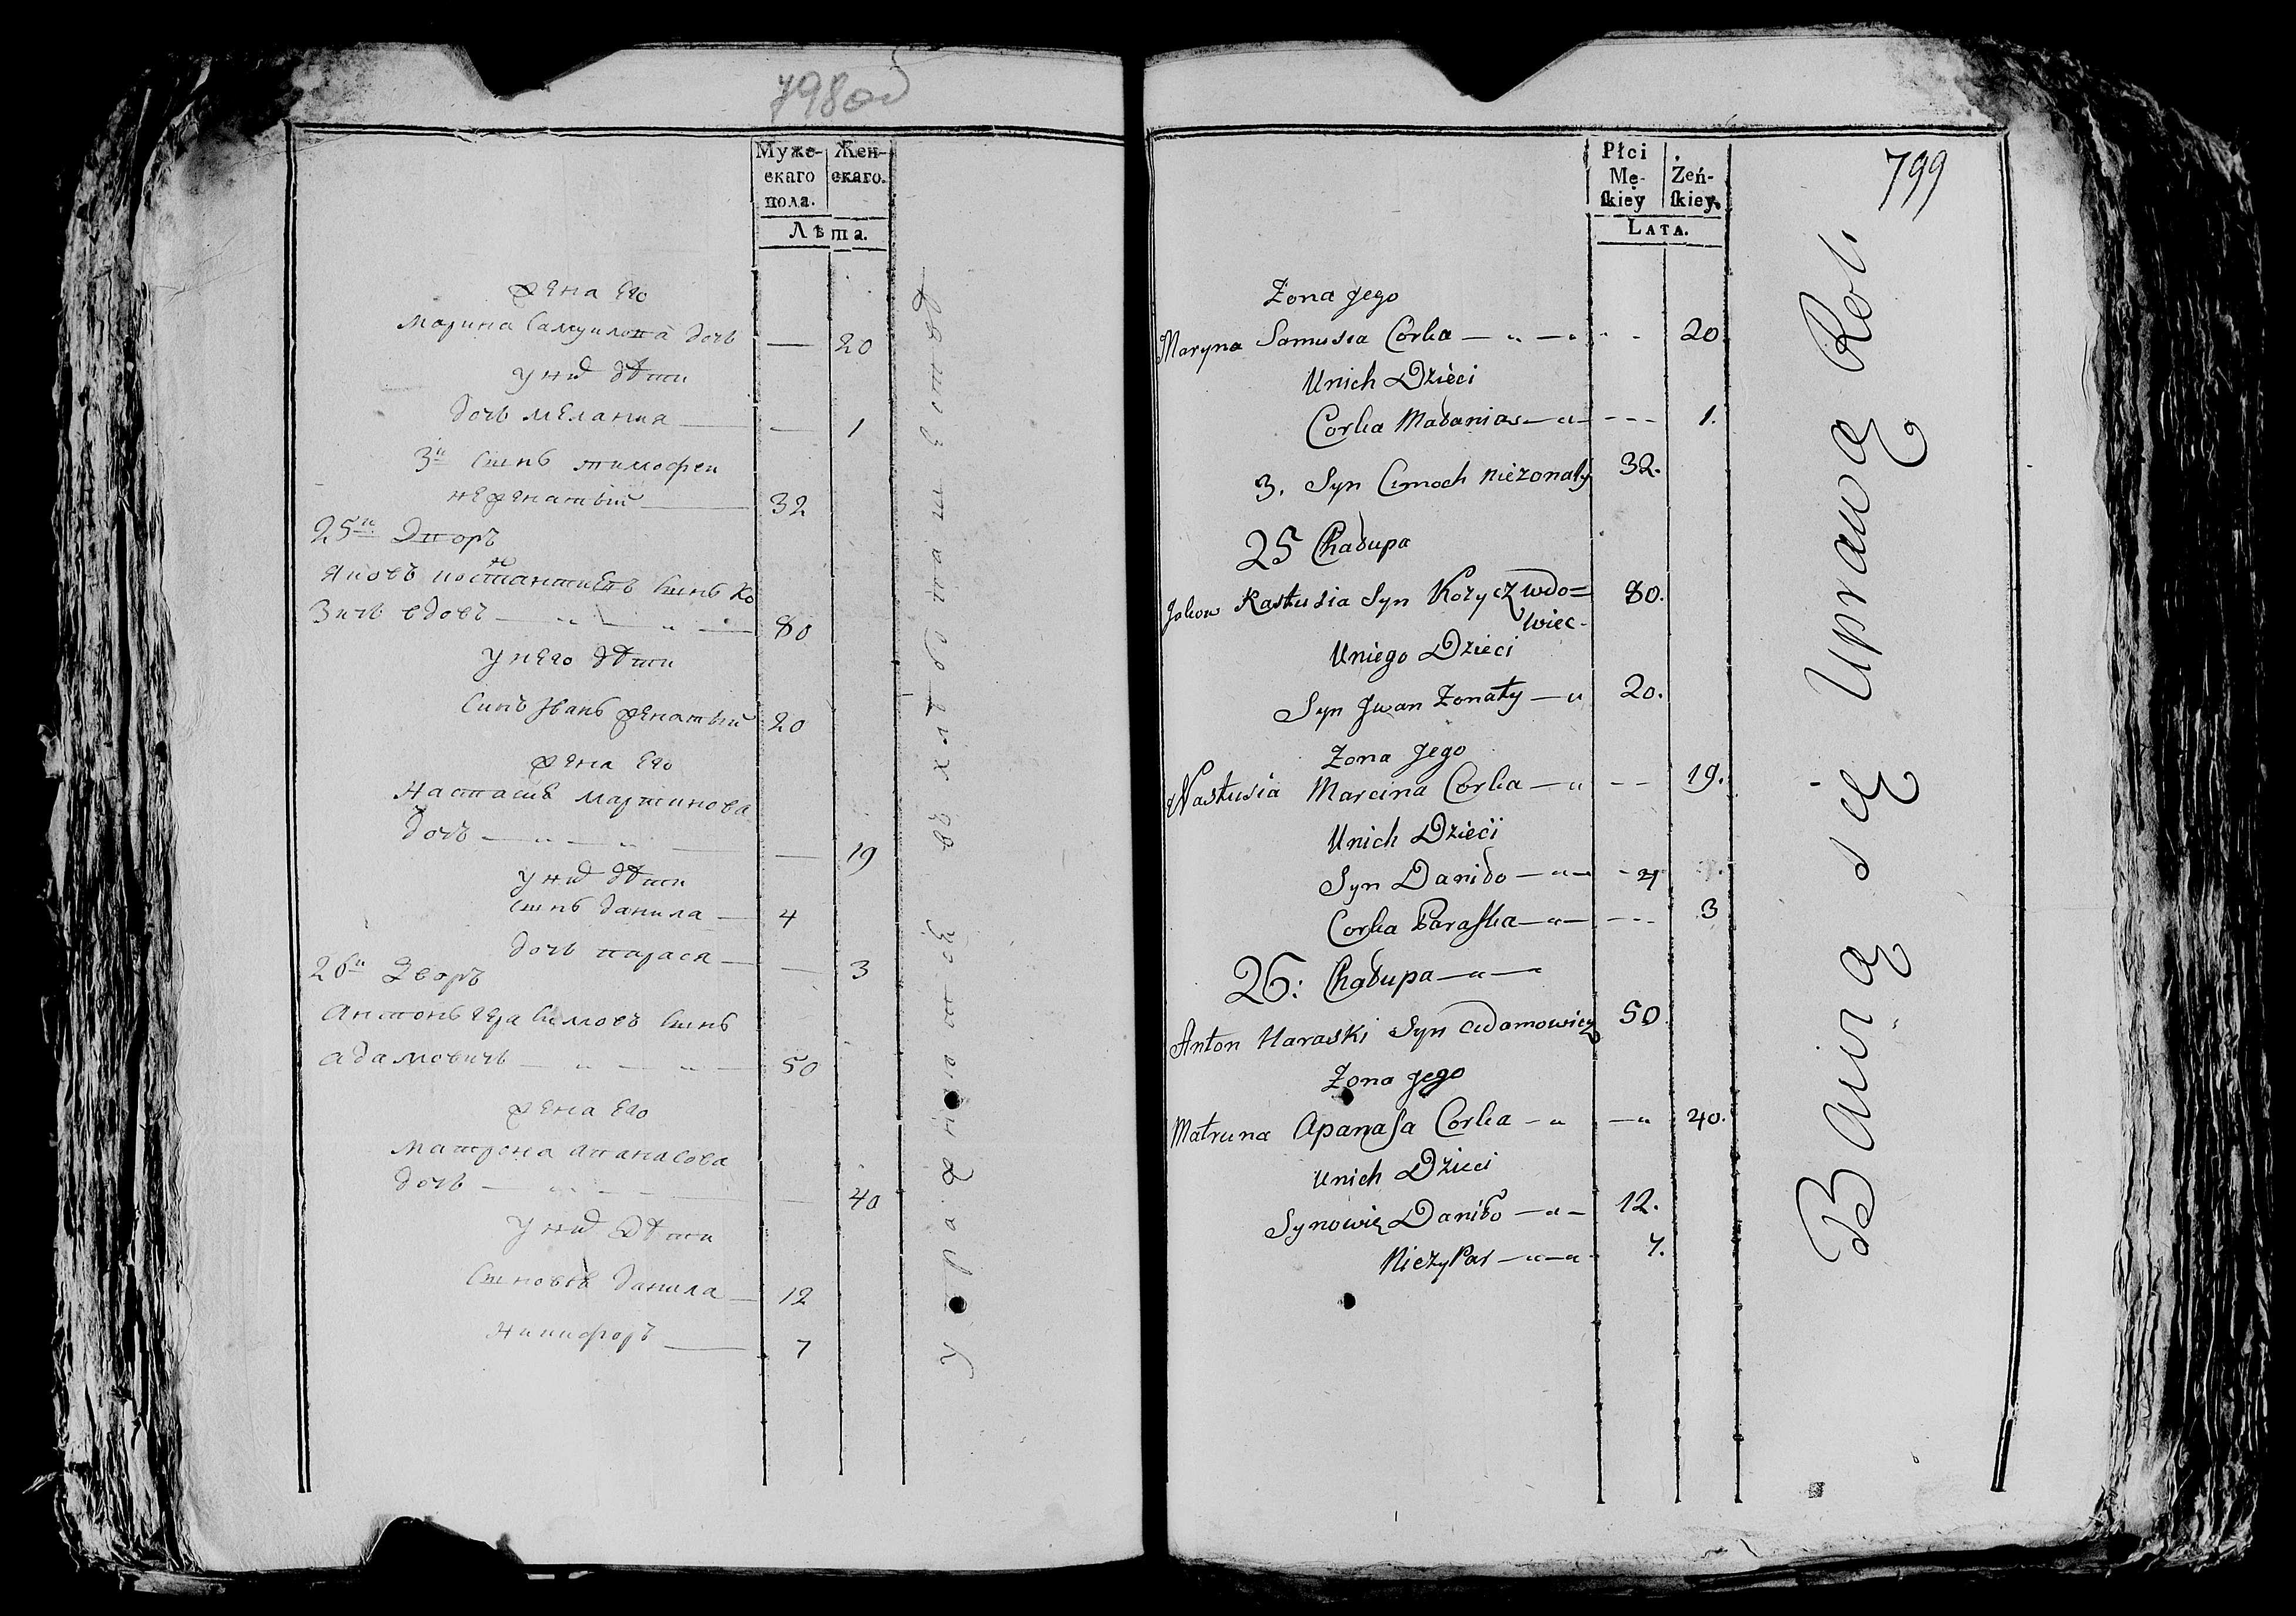 798об
Муже-
скаго
пола.
Жен-
скаго.
Лѣта.
жена его
марина самуилова дочь — 20
у них дѣти
дочь мелания — 1
3й синъ тимофеи
неженатый — 32
25й Дворъ
яковъ костантиевъ синъ ко
зичъ вдовъ — 80
у него дѣти
синъ Иванъ женатый 20
жена его
настасия мартинова
дочь — 19
у них дѣти
синъ данила — 4
дочь парася — 3
26й Дворъ
антонъ герасимовъ синъ
адамовичъ — 50
жена его
матрона апанасова
дочь — 40
у них дѣти
синовья данила — 12
никифоръ — 7
799
Płci
Mę-
skiey
Żeń-
skiey.
Lata.
Żona Jego
Maryna Samusia Corka — „ — „ - - 20
Unich Dzieci
Corka Małania — „ — - - - 1.
3. Syn Cimoch nieżonaty 32.
25 Chałupa
Jakow Kastusia Syn Kozycz wdo=
wiec - 80.
Uniego Dzieci
Syn Jwan Żonaty — „ 20.
Żona Jego
Nastusia Marcina Corka — „ - - 19.
Unich Dzieci
Syn Daniło — „ — - 4
Corka Paraska — „ — - - - 3
26: Chałupa — „ —
Anton Haraski Syn Adamowicz 50
Żona Jego
Matruna Apanasa Corka — „ — „ 40.
Unich Dzieci
Synowie Daniło — „ — 12.
Niczypar — „ — „ 7.
Bawią się Uprawą Roli